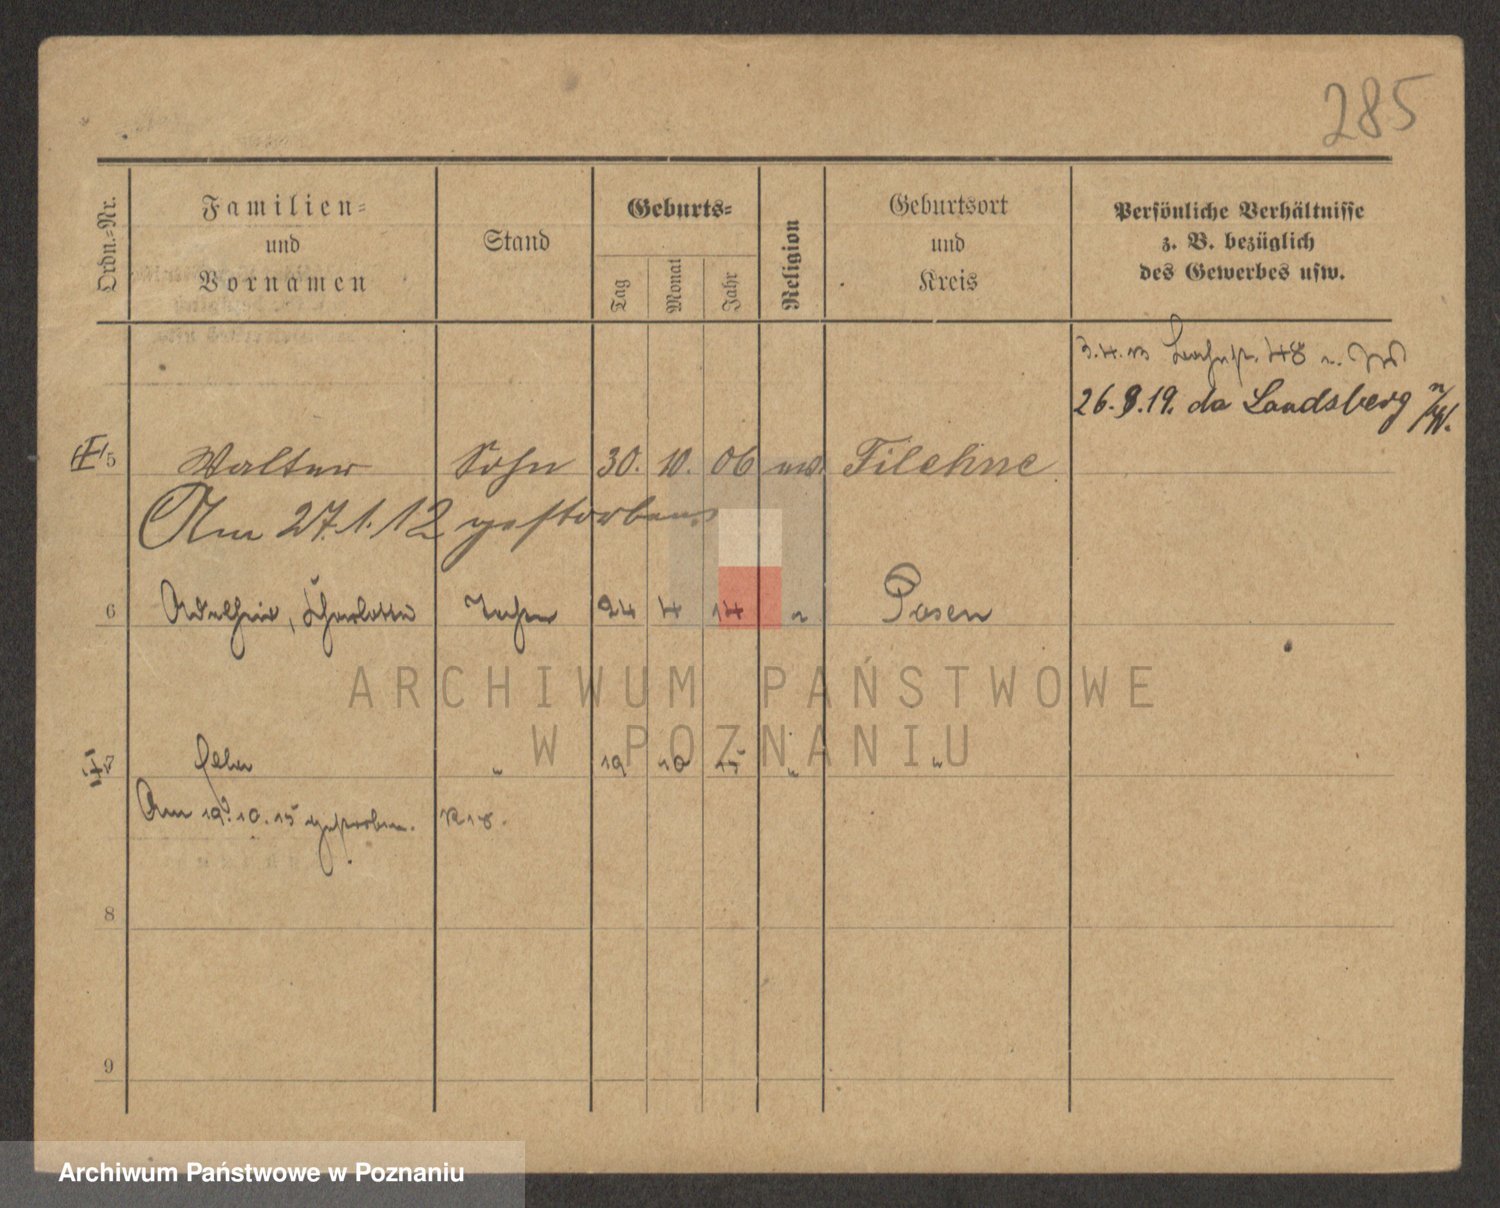 285
Ordn.-Nr. Familien- und Vornamen Stand Geburts- Tag Monat Jahr Religion Geburtsort und Kreis Persönliche Verhältnisse z. B. bezüglich des Gewerbes usw.
3.4.13 48
26.8.19. da Landsberg a/W.
5 Walter Sohn 30. 10. 06 Filehne
Am 27.1.12 gestorben
6 Adelheid, Charlotte Tochter 24 4 14 " Posen
ARCHIWUM PAŃSTWOWE
W POZNANIU
7 " 19 10 15 " "
Am 19.10.15 gestorben.
8
9
Archiwum Państwowe w Poznaniu